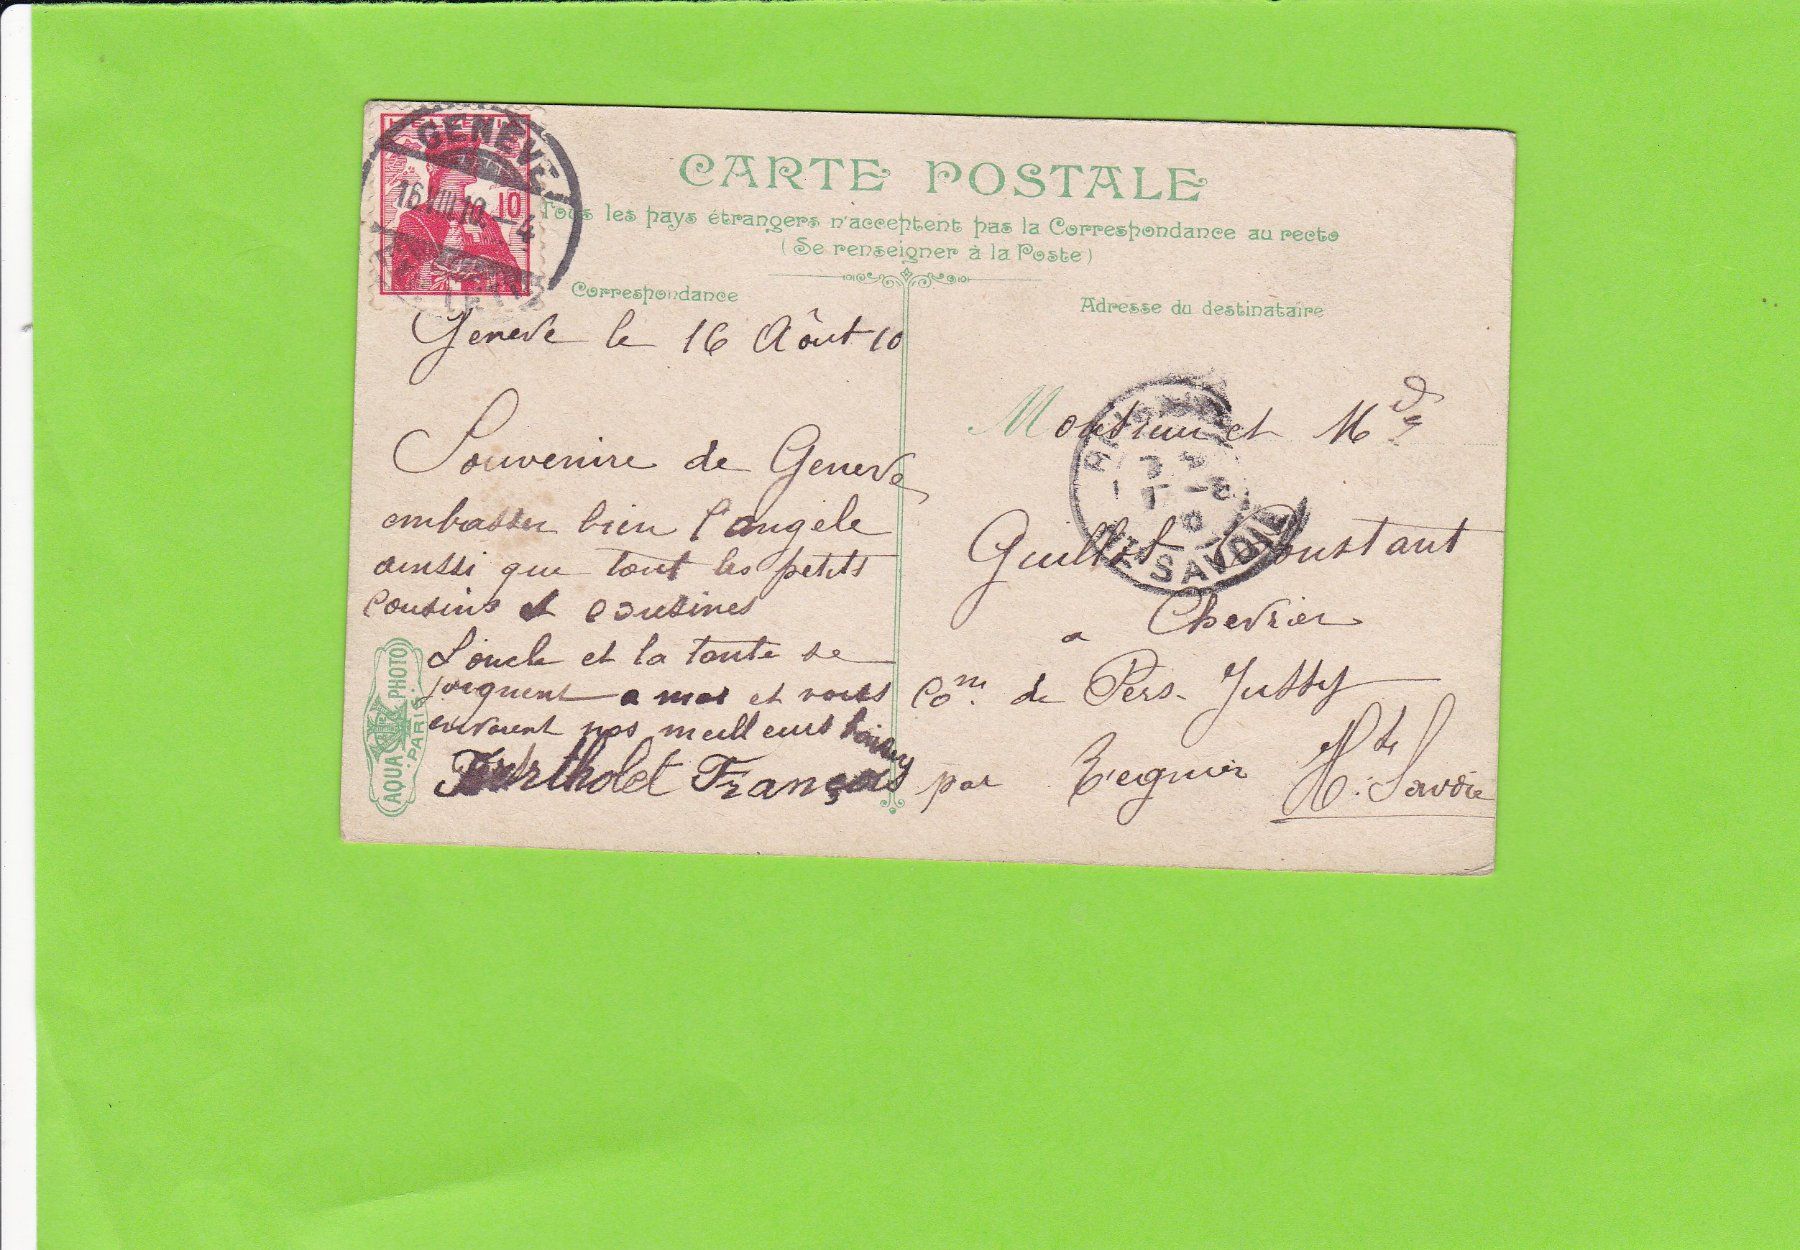 CARTE POSTALE
Tous les pays étrangers n'acceptent pas la Correspondance au recto
(Se renseigner à la Poste)
Correspondance
Adresse du destinataire
GENÈVE
16.VIII.10.-4
10
Geneve le 16 Août 10
Souvenire de Geneve
embasser bien l'angele
ainssi que tout les petits
cousins et cousines
L'oncle et la tante se
joignent a moi et vous
envoient nos meilleurs baisers
Bertholet François
Monsieur et Mde
Guillot Constant
a Chevrier
Com. de Pers-Jussy
par Reignier Hte Savoie
HTE SAVOIE
AQUA PHOTO
PARIS